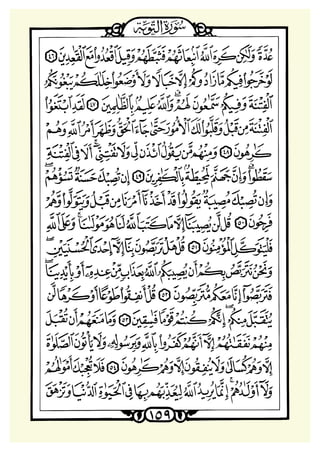 سُورَةُ التَّوْبَةِ
عُدَّةً وَلَٰكِن كَرِهَ اللَّهُ انبِعَاثَهُمْ فَثَبَّطَهُمْ وَقِيلَ اقْعُدُوا مَعَ الْقَٰعِدِينَ ٤٦
لَوْ خَرَجُوا فِيكُم مَّا زَادُوكُمْ إِلَّا خَبَالًا وَلَأَوْضَعُوا خِلَٰلَكُمْ يَبْغُونَكُمُ
الْفِتْنَةَ وَفِيكُمْ سَمَّٰعُونَ لَهُمْ وَاللَّهُ عَلِيمٌ بِالظَّٰلِمِينَ ٤٧ لَقَدِ ابْتَغَوُا
الْفِتْنَةَ مِن قَبْلُ وَقَلَّبُوا لَكَ الْأُمُورَ حَتَّىٰ جَاءَ الْحَقُّ وَظَهَرَ أَمْرُ اللَّهِ وَهُمْ
كَٰرِهُونَ ٤٨ وَمِنْهُم مَّن يَقُولُ ائْذَن لِّي وَلَا تَفْتِنِّي أَلَا فِي الْفِتْنَةِ
سَقَطُوا وَإِنَّ جَهَنَّمَ لَمُحِيطَةٌ بِالْكَٰفِرِينَ ٤٩ إِن تُصِبْكَ حَسَنَةٌ تَسُؤْهُمْ
وَإِن تُصِبْكَ مُصِيبَةٌ يَقُولُوا قَدْ أَخَذْنَا أَمْرَنَا مِن قَبْلُ وَيَتَوَلَّوا وَّهُمْ
فَرِحُونَ ٥٠ قُل لَّن يُصِيبَنَا إِلَّا مَا كَتَبَ اللَّهُ لَنَا هُوَ مَوْلَىٰنَا وَعَلَى اللَّهِ
فَلْيَتَوَكَّلِ الْمُؤْمِنُونَ ٥١ قُلْ هَلْ تَرَبَّصُونَ بِنَا إِلَّا إِحْدَى الْحُسْنَيَيْنِ
وَنَحْنُ نَتَرَبَّصُ بِكُمْ أَن يُصِيبَكُمُ اللَّهُ بِعَذَابٍ مِّنْ عِندِهِ أَوْ بِأَيْدِينَا
فَتَرَبَّصُوا إِنَّا مَعَكُم مُّتَرَبِّصُونَ ٥٢ قُلْ أَنفِقُوا طَوْعًا أَوْ كَرْهًا لَّن
يُتَقَبَّلَ مِنكُمْ إِنَّكُمْ كُنتُمْ قَوْمًا فَٰسِقِينَ ٥٣ وَمَا مَنَعَهُمْ أَن تُقْبَلَ
مِنْهُمْ نَفَقَٰتُهُمْ إِلَّا أَنَّهُمْ كَفَرُوا بِاللَّهِ وَبِرَسُولِهِ وَلَا يَأْتُونَ الصَّلَوٰةَ
إِلَّا وَهُمْ كُسَالَىٰ وَلَا يُنفِقُونَ إِلَّا وَهُمْ كَٰرِهُونَ ٥٤ فَلَا تُعْجِبْكَ أَمْوَٰلُهُمْ
وَلَا أَوْلَٰدُهُمْ إِنَّمَا يُرِيدُ اللَّهُ لِيُعَذِّبَهُم بِهَا فِي الْحَيَوٰةِ الدُّنْيَا وَتَزْهَقَ
١٥٩